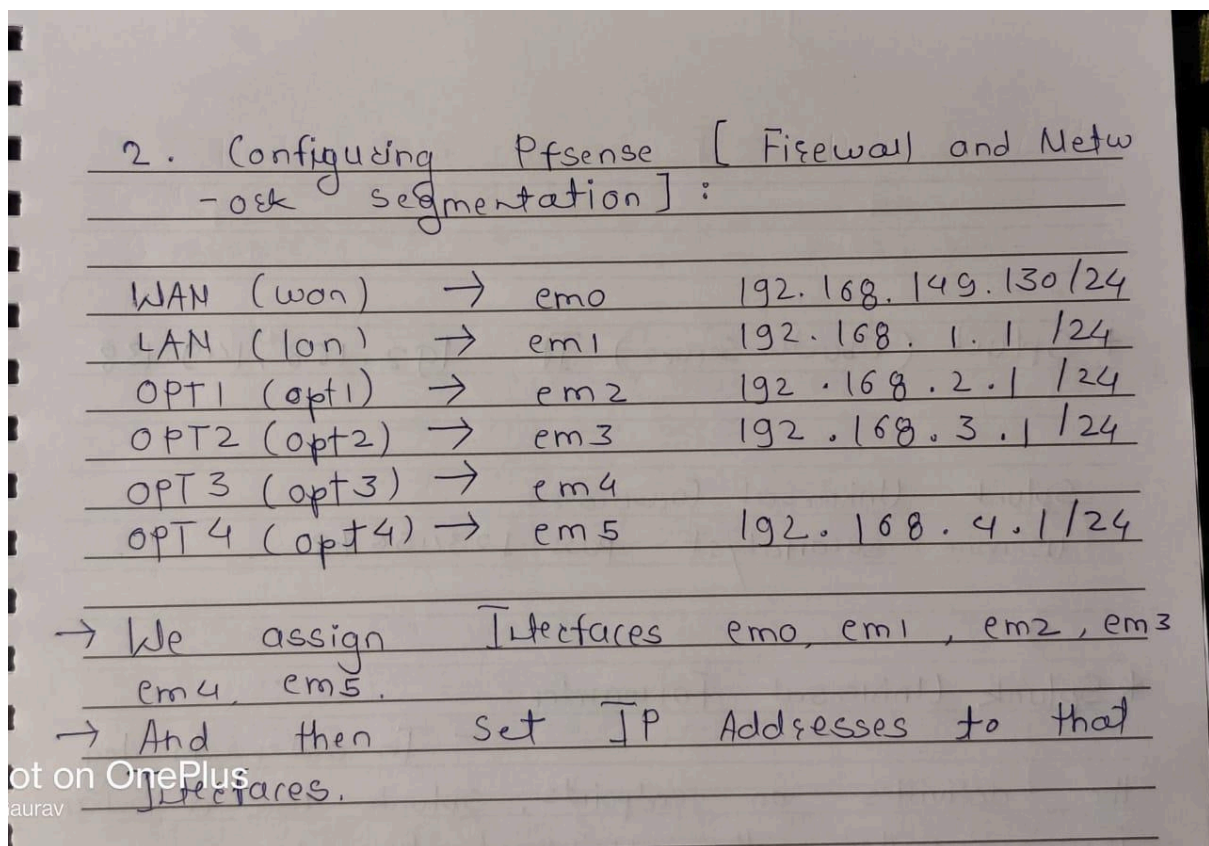 2. Configuring Pfsense [ Firewall and Netw
-ork segmentation ] :
WAN (wan) → em0 192.168.149.130/24
LAN (lan) → em1 192.168.1.1 /24
OPT1 (opt1) → em2 192.168.2.1 /24
OPT2 (opt2) → em3 192.168.3.1 /24
OPT3 (opt3) → em4
OPT4 (opt4) → em5 192.168.4.1/24
→ We assign Interfaces em0, em1, em2, em3
em4, em5.
→ And then set IP Addresses to that
Interfaces.
ot on OnePlus
aurav